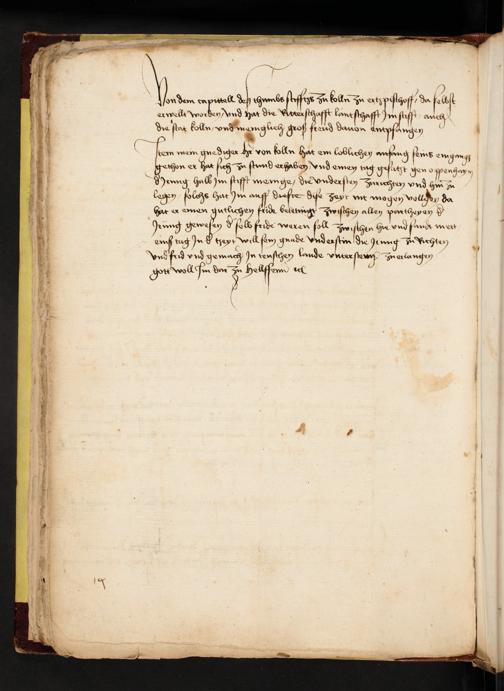 Von dem capittell des thumbs stiffts zu kolln zu ertzpischoff da selbst
erwelt worden und hat die Ritterschafft lantschafft Im stifft auch
die stat kolln und menglich groß freud dauon entpfangen
Item mein gnediger h͛r von kolln hat ein loblichen anfang seins
gethon er hat sich zu stund erhaben und einen tag gesatzt gen oppenheym
d͛ Irung halb Im stifft meintze die understen zurichten und hin zu
legen solchs hat Im auff dasste dise zeyt nit mogen volgen da
hat er einen gutlichen fride zwischen allen partheyen d͛
Irung gewesen d͛ selb fride weren soll zwischen hie und sand
tag In d͛ zeyt will sein gnade understin die Irung zu Richten
und frid und gemach In teuschen lande zuerlangen
gott woll Im dar zu helffenn